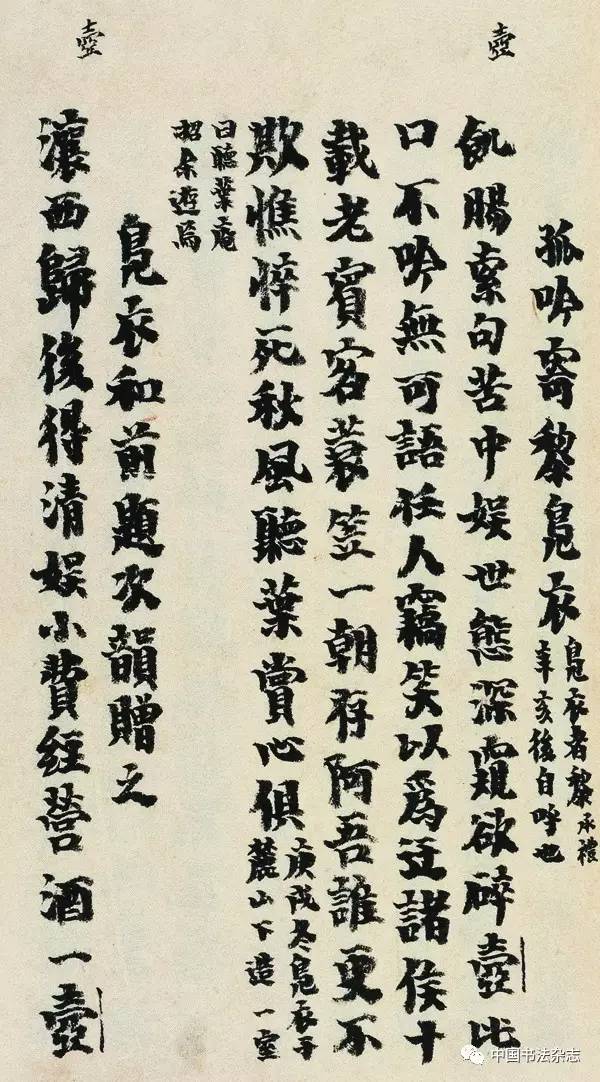 壺
壺
孤吟寄黎鳧衣
鳧衣者黎承禮
辛亥後自呼也
飢腸索句苦中娛世態深窺欲碎壺此
口不吟無可語任人竊笑以爲迂諸侯十
載老賓客蓑笠一朝存阿吾誰更不
欺憔悴死秋風聽葉賞心俱
庚戌冬鳧衣于
麓山下造一室
曰聽葉庵
招余遊焉
鳧衣和前題次韻贈之
瀼西歸後得清娛小費經營酒一壺
中国书法杂志